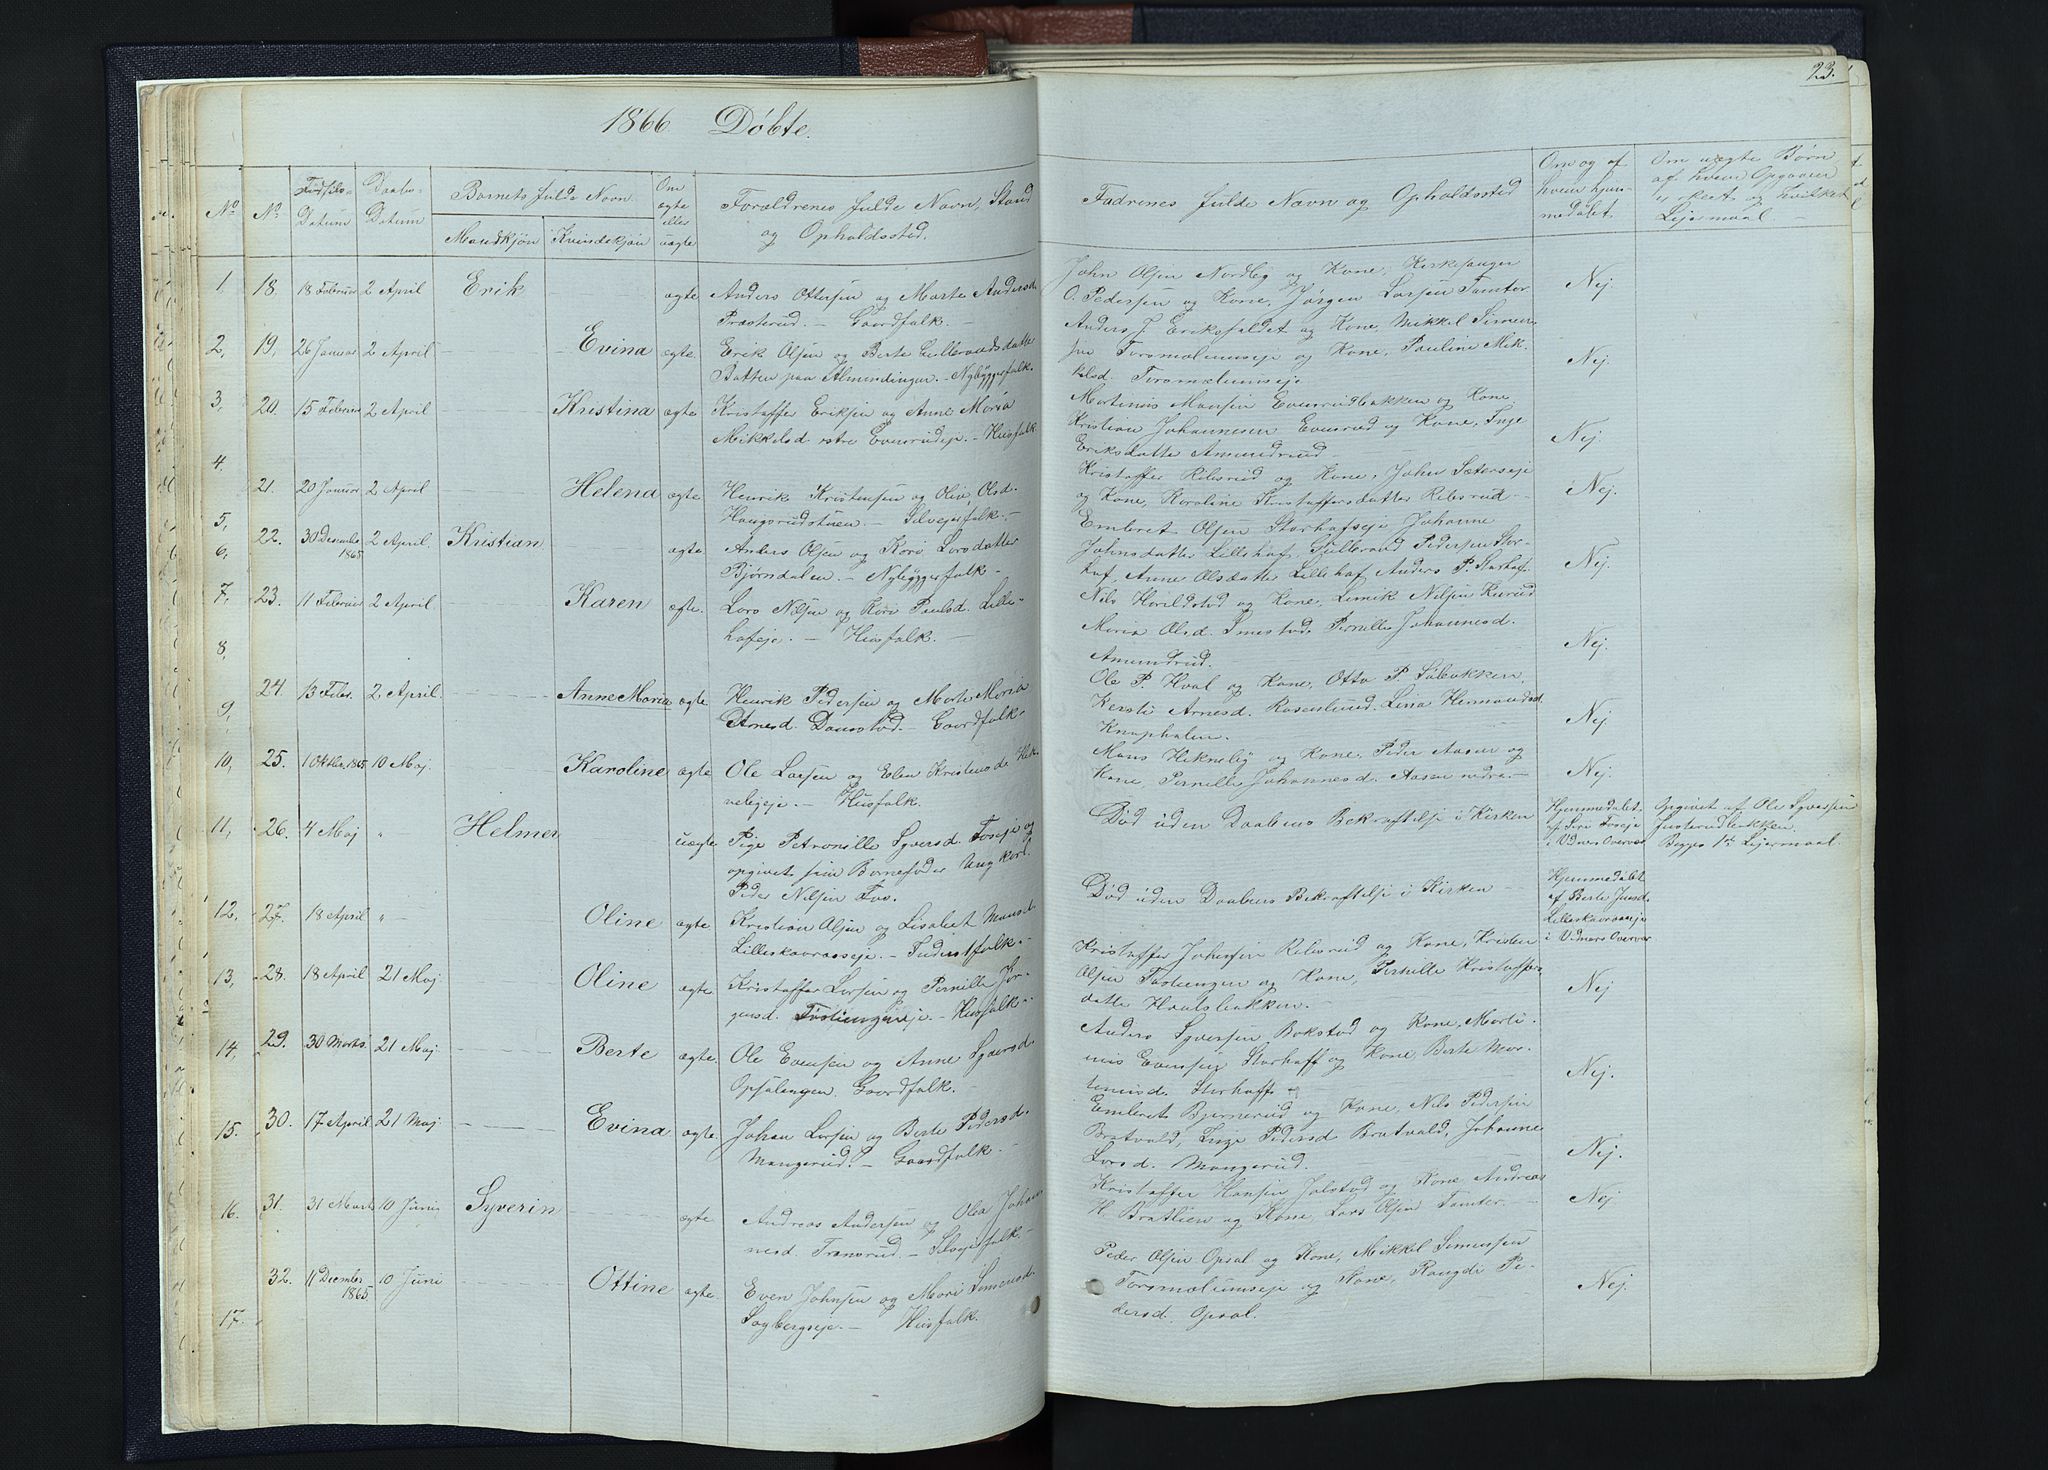 23.
1866 Döbte.
No.
No.
Fødsels-
Datum
Daabs-
Datum
Barnets fulde Navn.
Mandkjøn
Kvindekjøn
Om
ægte
eller
uægte
Forældrenes fulde Navn, Stand
og Opholdssted.
Fadrenes fulde Navn og Opholdssted
Om og af
hvem hjem-
medøbt
Om uægte Børn
af hvem Opgaven
er skeet og hvilket
Lejermaal
1 18. 18 Februar 2 April Erik ægte Anders Ottersen og Marte Andersd.
Præsterud. — Gaardfolk. —
John Olsen Nordby og Kone, Kirkesanger
O. Pedersen og Kone, Jørgen Larsen Tomter
Nej.
2, 19, 26 Januar 2 April Evina ægte Erik Olsen og Berte Gulbrandsdatter
Batten paa Almendingen. — Nybyggerfolk.
Anders J. Eriksfaldet og Kone, Mikkel Simen-
sen og Kone, Pauline Mik-
kelsd.
Nej.
3, 20. 15 Februar 2 April Kristina ægte Kristoffer Eriksen og Anne Maria
Mikkelsd. østre Evensrudeje. — Husfolk
Martinus Hansen Evensrudbakken og Kone,
Kristian Johannesen Evensrud og Kone, Inge
Eriksdatter Amundrud —
Nej.
4. 21. 20 Januar 2 April Helena ægte Henrik Kristensen og Olia Olsd.
Haugsrudstuen. — Selvejerfolk. —
Kristoffer Rebsrud og Kone, John Sæterseje
og Kone, Karoline Kristoffersdatter Rebsrud —
Nej.
5, 22. 30 December 1865 2 April. Kristian ægte Anders Olsen og Kari Larsdatter
Bjørndalen. — Nybyggerfolk —
Embret Olsen Storhofseje, Johanne
Johnsdatter Lillehof, Gulbrand Pedersen Stor-
hof, Anne Olsdatter Lillehof, Anders P. Storhof.
Nej.
6,
7, 23. 11 Februar 2 April Karen ægte. Lars Nilsen og Kari Paulsd. Lille-
hofeje. — Husfolk. —
Nils Horildstad og Kone, Nilsen Kurud
Maria Olsd. Smestad, Pernille Johannesd.
Amundrud.
Nej.
8,
24. 13 Febr. 2 April Anne Maria ægte Henrik Pedersen og Marte Maria
Arnesd. Damstad. — Gaardfolk. —
Ole P. Hval og Kone, Otto P. Sæbakken,
Kersti Arnesd. Rosenlund, Lina Hermandsd.
Knaphalen.
Nej.
9,
10, 25. 1 Oktbr. 1865 10 Maj. Karoline ægte Ole Larsen og Elen Kristensd. Hek-
nebyeje. — Husfolk.
Hans Heknebye og Kone, Peder Aasen og
Kone, Pernille Johannesd. Aasen nedre. —
Nej.
11, 26. 4 Maj " Helmer uægte Pige Petronille Syversd. Foseje og
opgivet som Barnefader Ungkarl
Peder Nilsen Fos.
Død uden Daabens Bekræftelse i Kirken
Hjemmedøbt
af Siri Foseje
i Vidners Overvær
Opgivet af Ole Syversen
Begges 1ste Lejermaal.
12, 27. 18 April " Oline ægte Kristian Olsen og Lisabet Hansd.
Lilleskavraaseje. — Inderstfolk. —
Død uden Daabens Bekræftelse i Kirken —
Hjemmedøbt
af Berte Jensd.
Lilleskavraaseje
i Vidners Overvær
13, 28. 18 April 21 Maj Oline ægte Kristoffer Larsen og Pernille Jør-
gensd. — Husfolk.
Kristoffer Johansen Rebsrud og Kone, Kristen
Olsen og Kone, Pernille Kristoffers-
datter Hvalsbakken. —
Nej
14, 29. 30 Marts. 21 Maj Berte ægte. Ole Evensen og Anne Syversd.
Opsalengen. Gaardfolk. —
Anders Syversen Bakstad og Kone, Marti-
nus Evensen Storhoff og Kone, Berte Mar-
tinusd. Storhoff.
Nej.
15. 30. 17 April 21 Maj Evina ægte. Johan Larsen og Berte Pedersd.
Mangerud. — Gaardfolk. —
Embret Bjørnerud og Kone, Nils Pedersen
Bratvold, Inge Pedersd. Bratvold, Johanne
Larsd. Mangerud.
Nej.
16. 31. 31 Marts 10 Juni Syverin ægte. Andreas Andersen og Olea Johan-
nesd. Transrud. — Selvejerfolk —
Kristoffer Hansen Jalstad og Kone, Andreas
H. Bratlien og Kone, Lars Olsen Tomter. —
Nej
17. 32. 11 December 1865 10 Juni Ottine ægte. Even Johnsen og Mari Simensd.
Sagbergseje. — Husfolk.
Peder Olsen Opsal og Kone, Mikkel Simensen
og Kone, Rangdi Pe-
dersd. Opsal.
Nej.